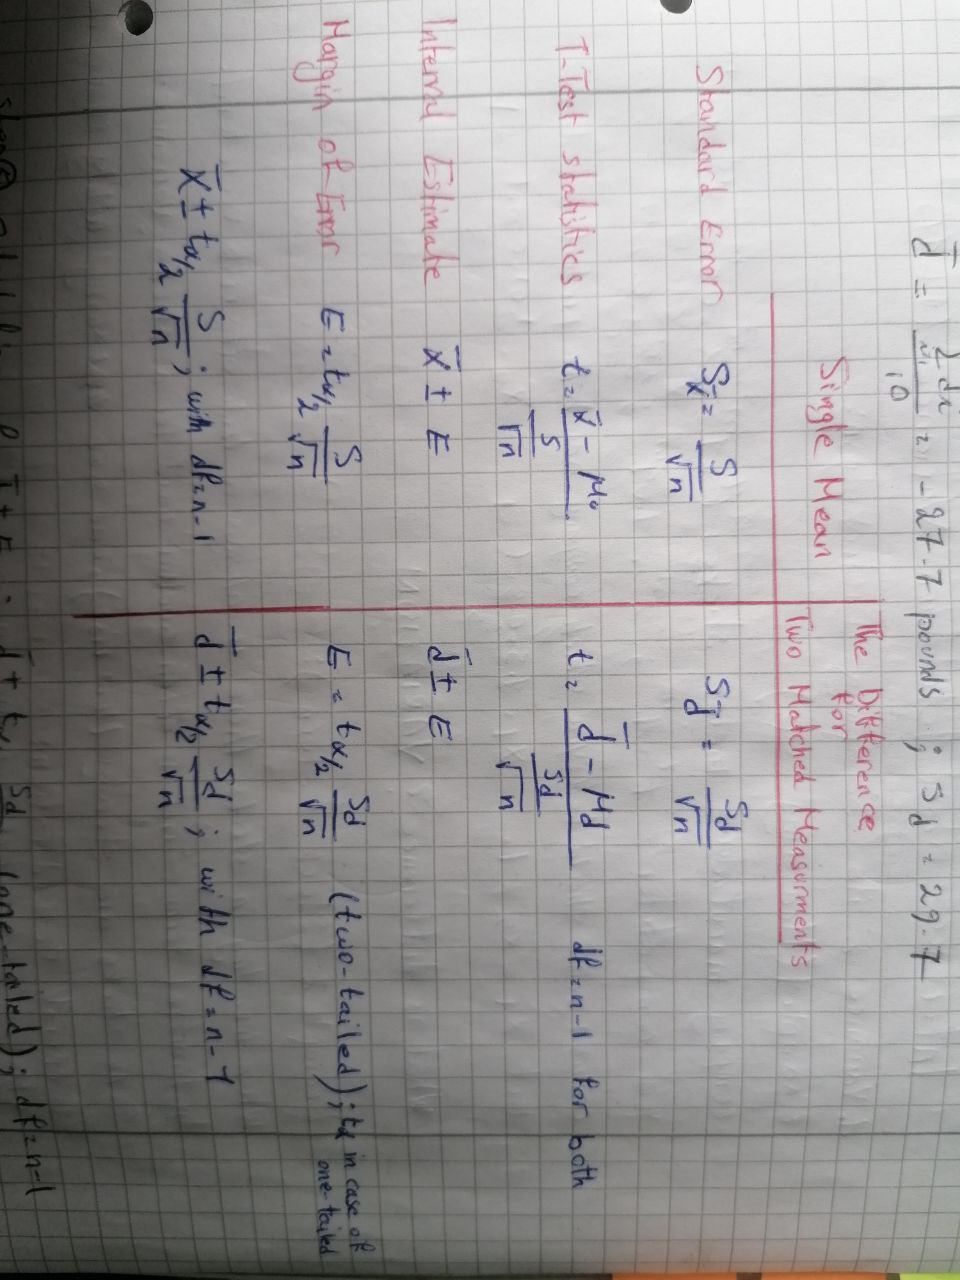 d̄ = Σdi / 10 = -27.7 pounds ; Sd = 29.7
Single Mean
The Difference
for
Two Matched Measurments
Standard Error Sx̄ = S/√n Sd̄ = Sd/√n
T-Test statistics t = (x̄ - μ₀)/(S/√n) t = (d̄ - μd)/(Sd/√n) df = n-1 for both
Interval Estimate x̄ ± E d̄ ± E
Margin of Error E = tα/2 S/√n E = tα/2 Sd/√n (two-tailed) ; tα in case of
one-tailed
x̄ ± tα/2 S/√n ; with df = n-1 d̄ ± tα/2 Sd/√n ; with df = n-1
d̄ ± tα Sd (one-tailed) ; df = n-1